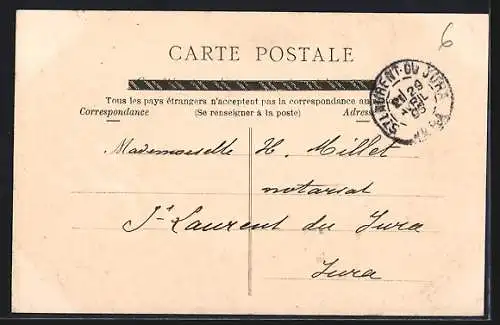 6
CARTE POSTALE
Tous les pays étrangers n'acceptent pas la correspondance au
Correspondance (Se renseigner à la poste) Adres
ST LAURENT-DU JURA
Mademoiselle H. Millet
notariat
St Laurent du Jura
Jura